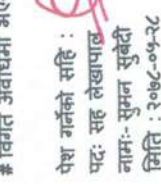 # विगत अवधिमा
पेश गर्नेको सहि :
पदः सह लेखापाल
नामः- सुमन सुबेदी
मिति : २०७८-०५-२८